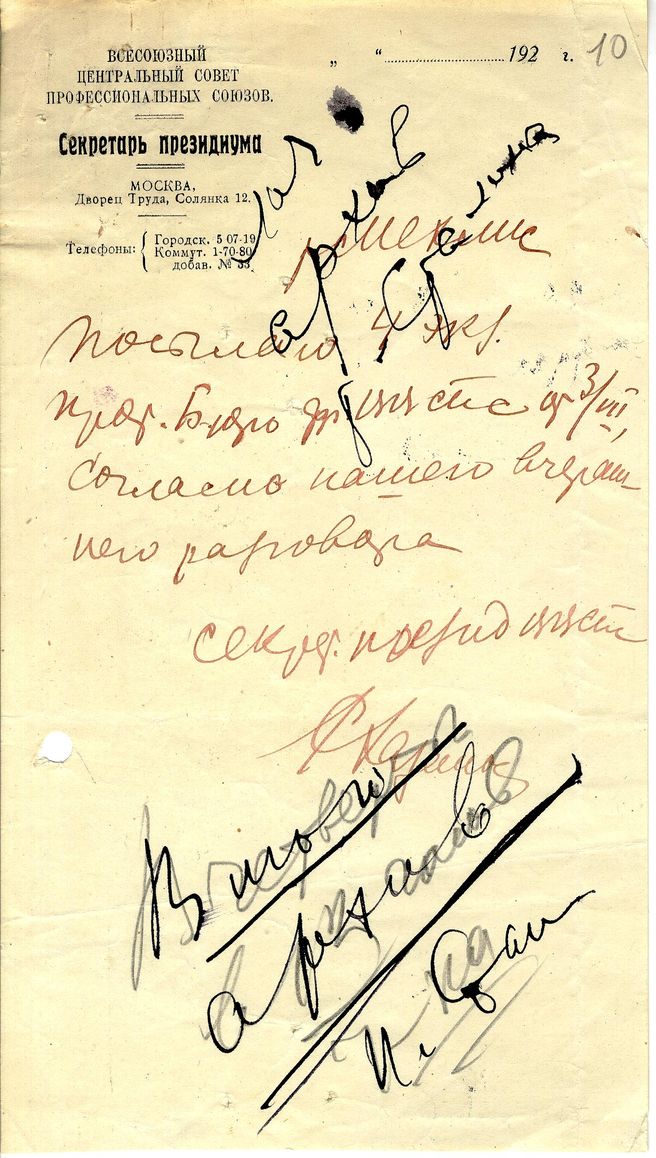 ВСЕСОЮЗНЫЙ
ЦЕНТРАЛЬНЫЙ СОВЕТ
ПРОФЕССИОНАЛЬНЫХ СОЮЗОВ.
Секретарь президиума
МОСКВА,
Дворец Труда, Солянка 12.
Телефоны: { Городск. 5 07-19
Коммут. 1-70-80
добав. № 33
„ “ 192 г.
10
Мой
архив
Сталина
т. Мехлис
Посылаю 4 экз.
прот. Бюро фр ЦКСТС от 3/III,
согласно нашего вчераш-
него разговора
Секрет.
В мой
архив
И. Стал